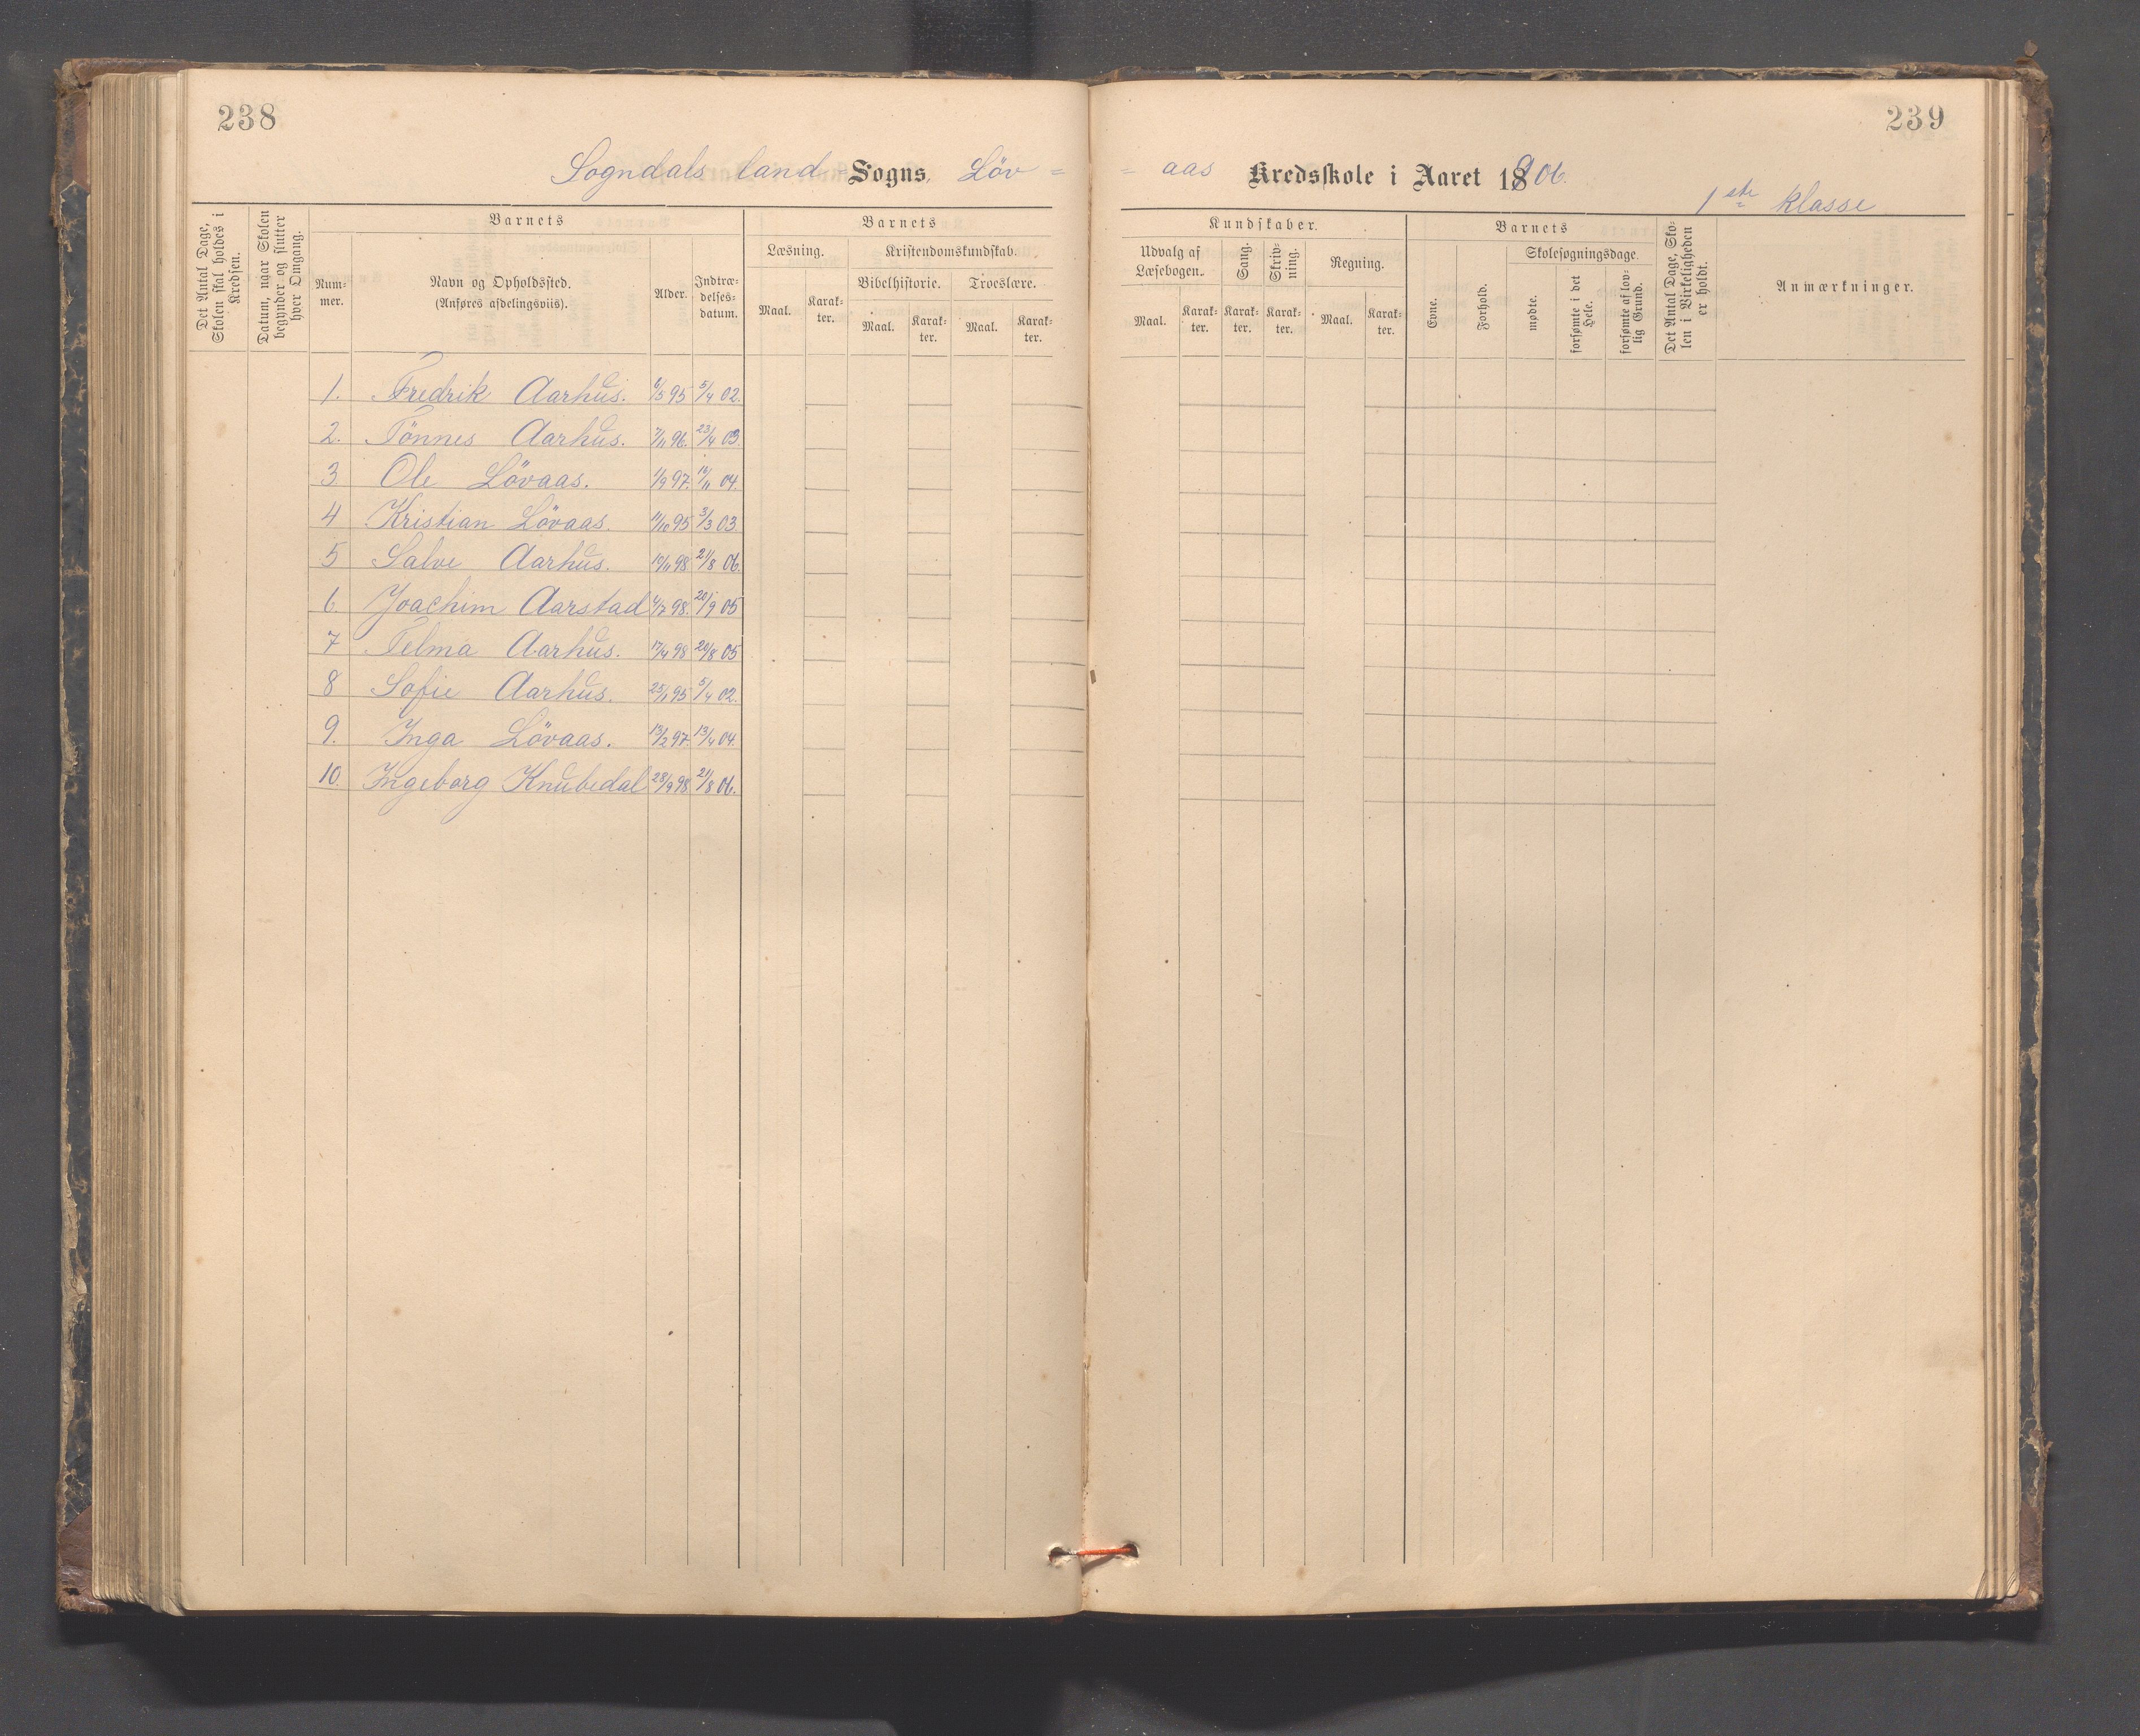 238
239
Sogndals land Sogns Löv =
= aas Kredsskole i Aaret 1906.
1ste klasse
Det Antal Dage, Skolen skal holdes i Kredsen.
Datum, naar Skolen begynder og slutter hver Omgang.
Barnets
Num-
mer.
Navn og Opholdssted.
(Anføres afdelingsviis).
Alder.
Indtræ-
delses-
datum.
Barnets
Læsning.
Maal.
Karak-
ter.
Kristendomskundskab.
Bibelhistorie.
Troeslære.
Maal.
Karak-
ter.
Maal.
Karak-
ter.
Kundskaber.
Udvalg af
Læsebogen.
Sang.
Skriv-
ning.
Regning.
Maal.
Karak-
ter.
Karak-
ter.
Karak-
ter.
Maal.
Karak-
ter.
Barnets
Evne.
Forhold.
Skolesøgningsdage.
mødte.
forsømte i det Hele.
forsømte af lov-
lig Grund.
Det Antal Dage, Sko-
len i Virkeligheden
er holdt.
Anmærkninger.
1. Fredrik Aarhus. 6/5 95 5/4 02.
2. Tönnes Aarhus. 7/11 96. 23/4 03.
3. Ole Lövaas. 1/9 97. 14/11 04.
4 Kristian Lövaas. 11/10 95 3/3 03.
5 Salve Aarhus. 19/11 98 21/8 06.
6. Joachim Aarstad 4/7 98. 20/9 05
7 Telma Aarhus. 17/4 98 20/8 05
8 Sofie Aarhus. 25/1 95 5/4 02.
9. Inga Lövaas. 13/2 97. 13/4 04.
10. Ingeborg Knubedal 28/9 98 21/8 06.